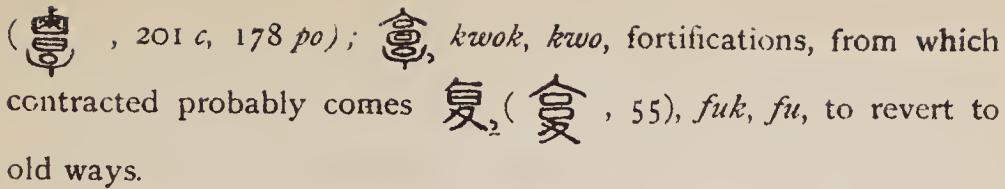 ( , 201 c, 178 po); kwok, kwo, fortifications, from which
contracted probably comes 复, ( , 55), fuk, fu, to revert to
old ways.